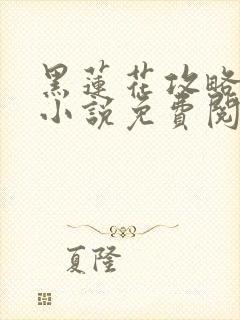 黑蓮花攻略
小說免費閱
夏隆